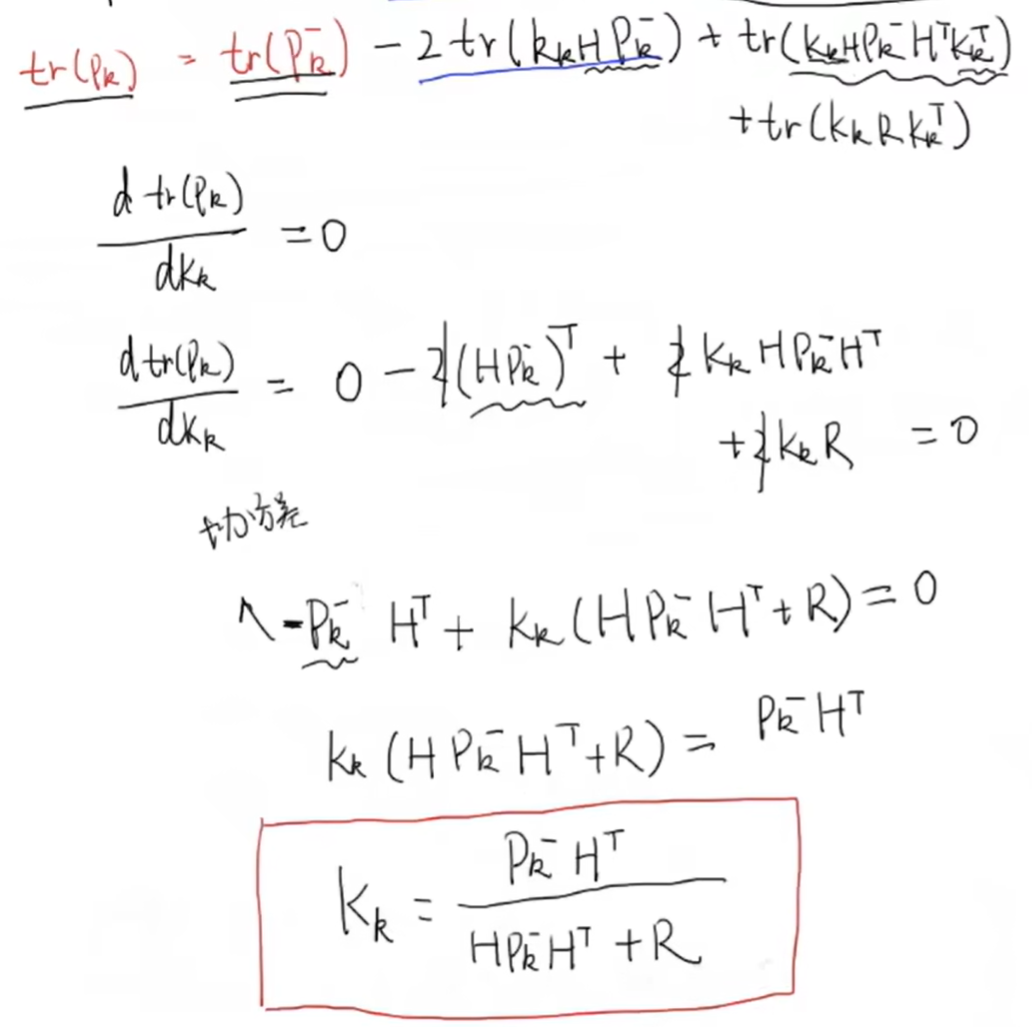 tr(Pₖ) = tr(Pₖ⁻) - 2tr(KₖHPₖ⁻) + tr(KₖHPₖ⁻HᵀKₖᵀ)
+ tr(KₖRKₖᵀ)
d tr(Pₖ) / dKₖ = 0
d tr(Pₖ) / dKₖ = 0 - 2(HPₖ⁻)ᵀ + 2KₖHPₖ⁻Hᵀ
+ 2KₖR = 0
协方差
-Pₖ⁻ Hᵀ + Kₖ(HPₖ⁻Hᵀ + R) = 0
Kₖ(HPₖ⁻Hᵀ + R) = Pₖ⁻Hᵀ
Kₖ = Pₖ⁻Hᵀ / HPₖ⁻Hᵀ + R